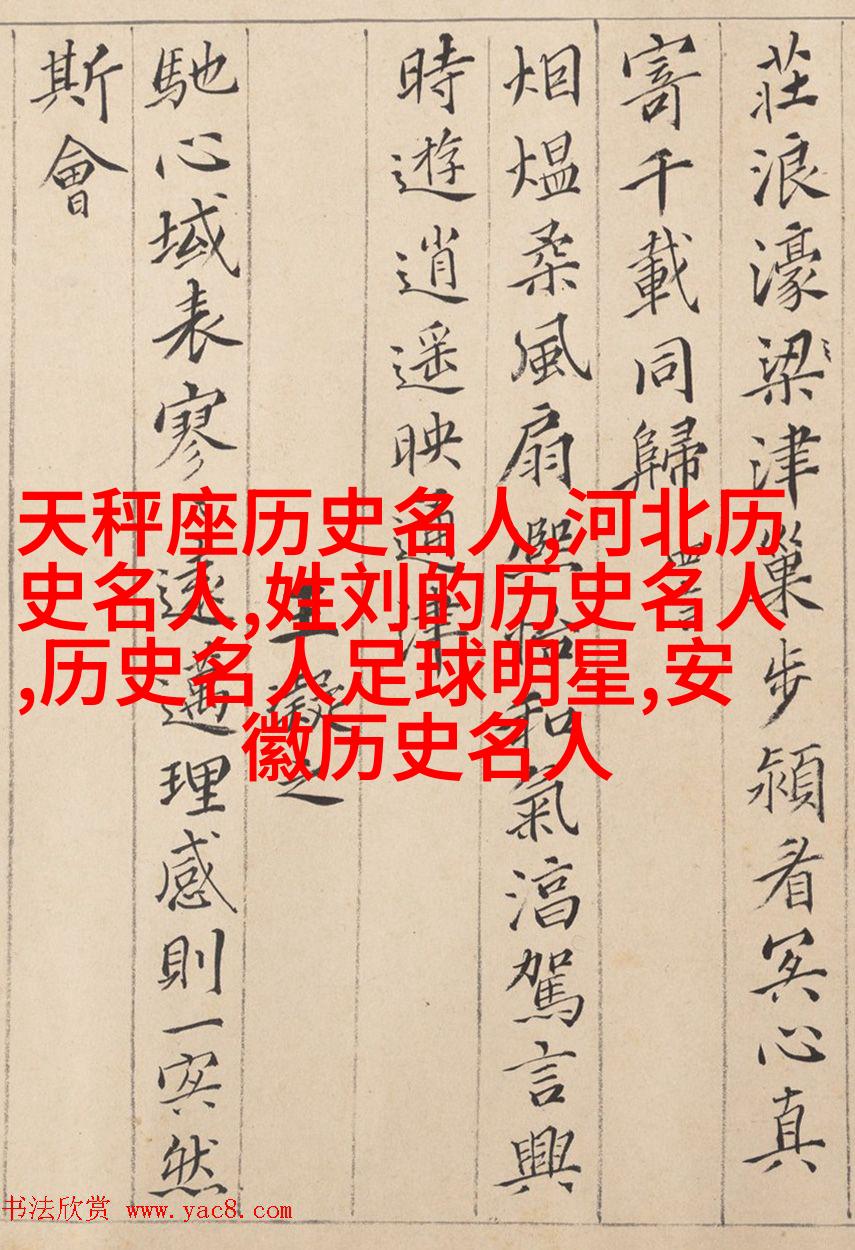 莊浪濠梁津巢步潁看冥心真
寄千載同歸
烟熅柔風扇熙怡和氣淳駕言興
時遊逍遥映通津
王凝之
馳心域表寥寥遠邁理感則一冥然
斯會
天秤座历史名人,河北历
史名人,姓刘的历史名人
,历史名人足球明星,安
徽历史名人
书法欣赏 www.yac8.com